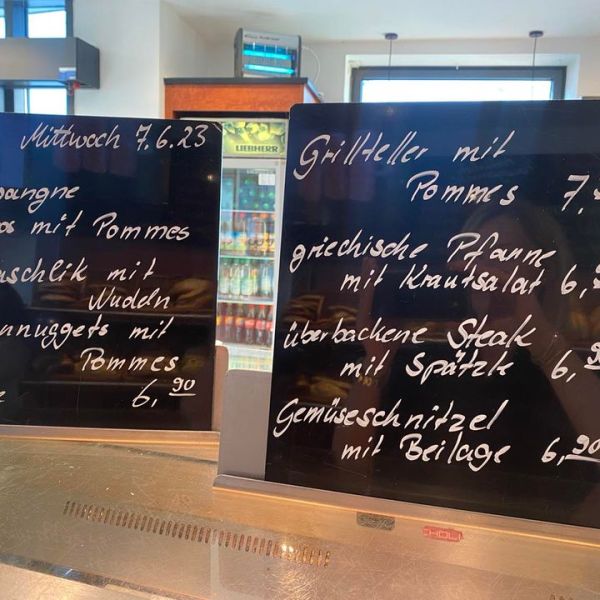 Mittwoch 7.6.23
mit Pommes
mit
Nudeln
mit
Pommes
6,90
LIEBHERR
Grillteller mit
Pommes 7,
griechische Pfanne
mit Krautsalat 6,
überbackene Steak
mit Spätzle 6,90
Gemüseschnitzel
mit Beilage 6,90